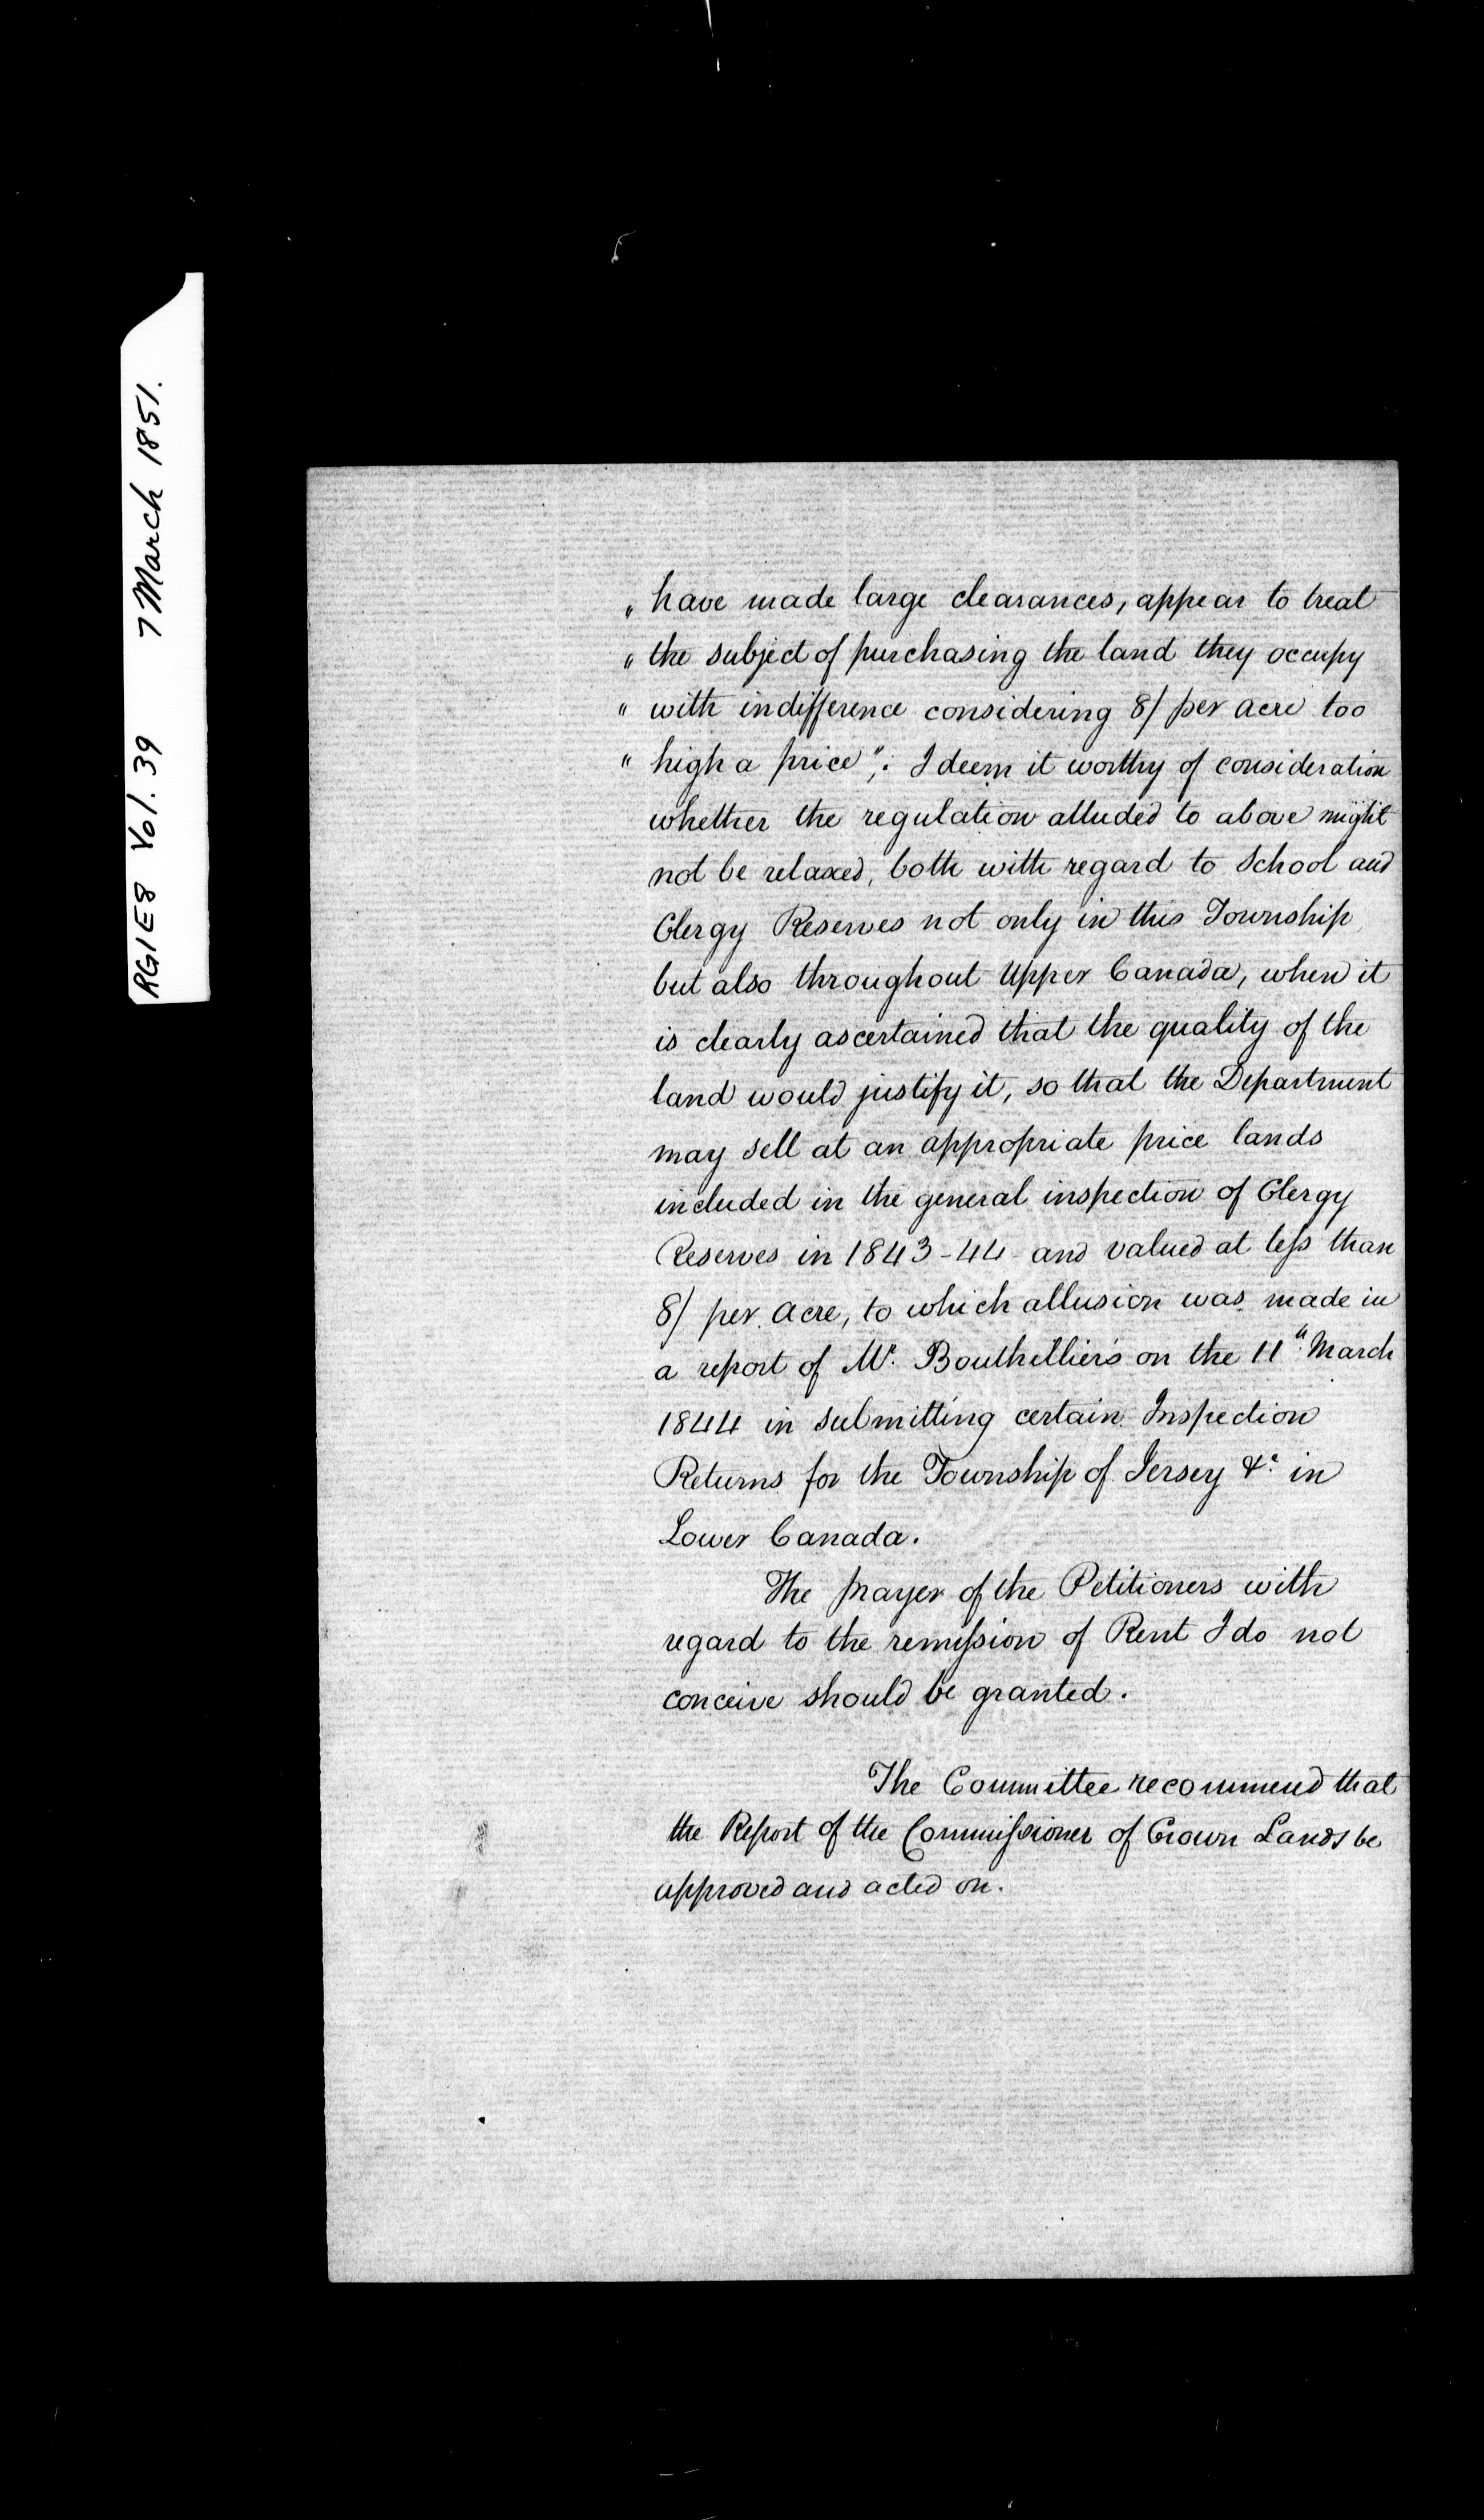 RG1E8 Vol. 39 7 March 1851.
„ have made large clearances, appear to treat
„ the subject of purchasing the land they occupy
" with indifference considering 8/ per acre too
" high a price"; I deem it worthy of consideration
whether the regulation alluded to above might
not be relaxed, both with regard to School and
Clergy Reserves not only in this Township
but also throughout Upper Canada, when it
is clearly ascertained that the quality of the
land would justify it, so that the Department
may sell at an appropriate price lands
included in the general inspection of Clergy
Reserves in 1843-44 and valued at less than
8/ per acre, to which allusion was made in
a report of Mr. Bouthillier's on the 11th March
1844 in submitting certain Inspection
Returns for the Township of Jersey &c. in
Lower Canada.
The prayer of the Petitioners with
regard to the remission of Rent I do not
conceive should be granted.
The Committee recommend that
the Report of the Commissioner of Crown Lands be
approved and acted on.